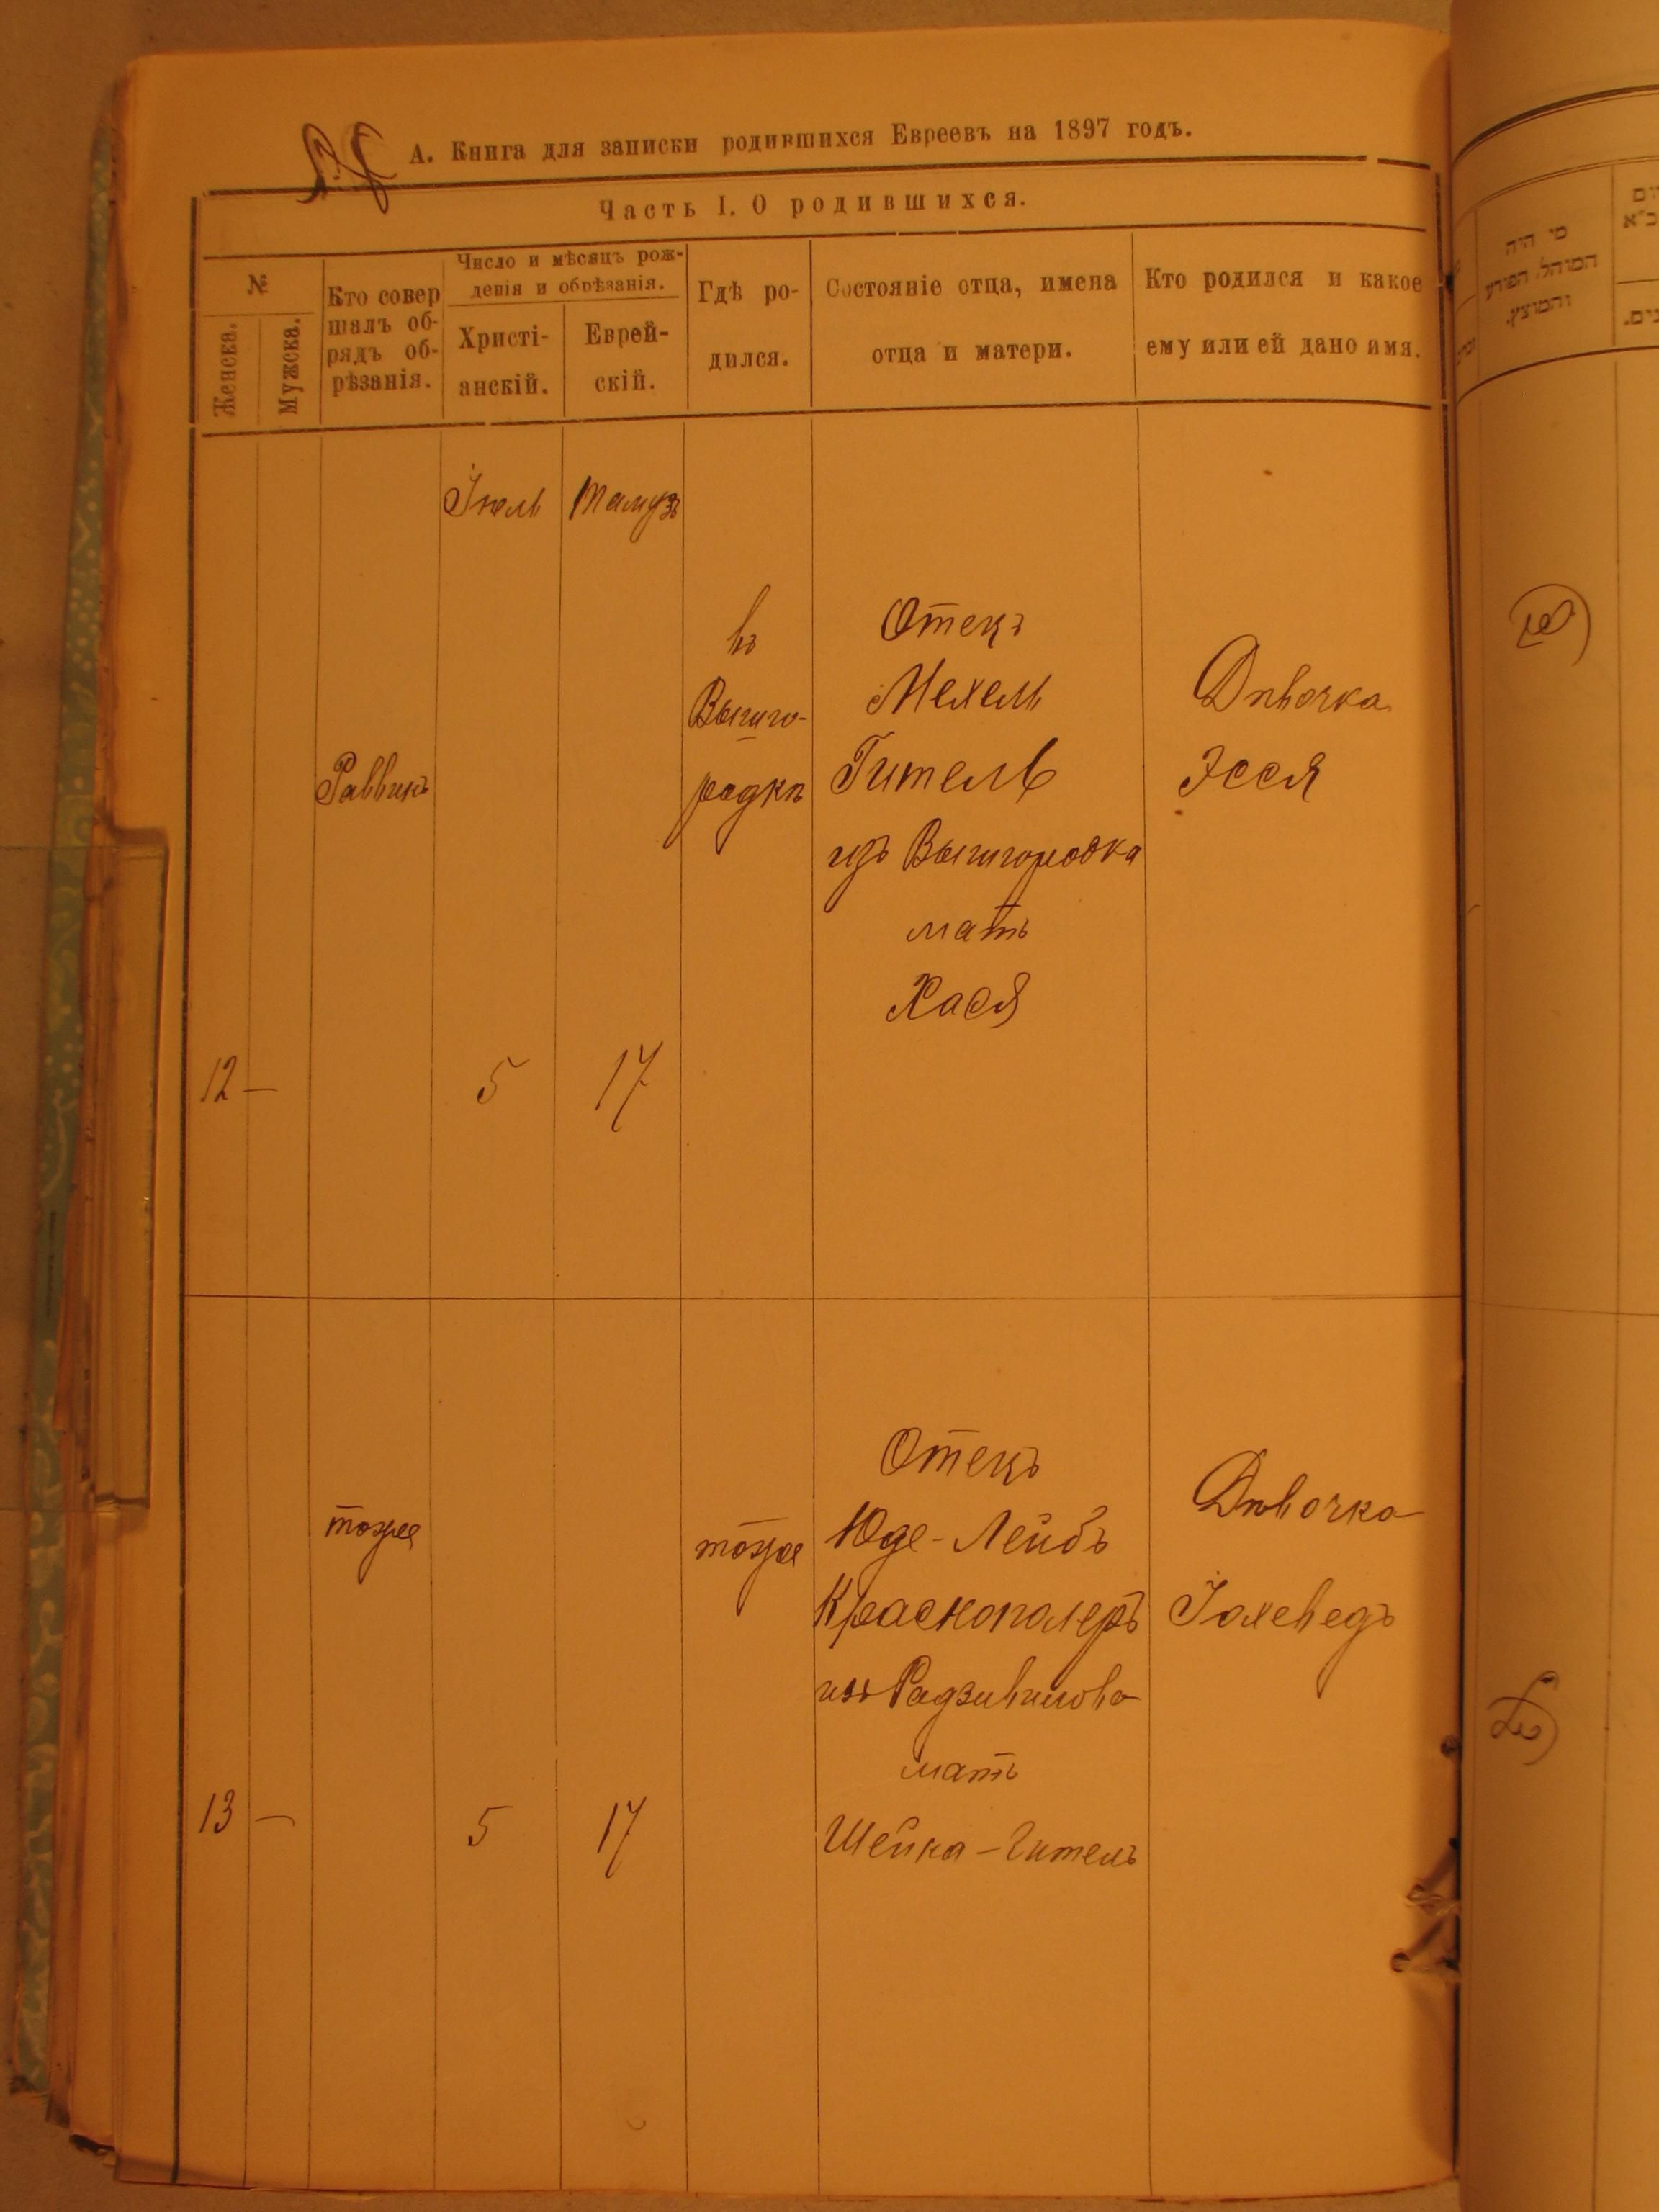 А. Книга для записки родившихся Евреевъ на 1897 годъ.
Часть I. О родившихся.
№
Женска.
Мужска.
Кто совер
шалъ об-
рядъ об-
рѣзанія.
Число и мѣсяцъ рож-
денія и обрѣзанія.
Христі-
анскій.
Еврей-
скій.
Гдѣ ро-
дился.
Состояніе отца, имена
отца и матери.
Кто родился и какое
ему или ей дано имя.
Іюль
Тамузъ
12 —
Раввинъ
5
17
въ
Вышго-
родкѣ
Отецъ
Мехель
Гитель
изъ Вышгородка
мать
Хася
Дѣвочка
Эсся
13 —
тоже
5
17
тоже
Отецъ
Юде-Лейбъ
Краскополеръ
изъ Радзивилова
мать
Шейка-Гитель
Дѣвочка
Іохеведъ
מי היה
המוהל, הפורע
והמוצץ.